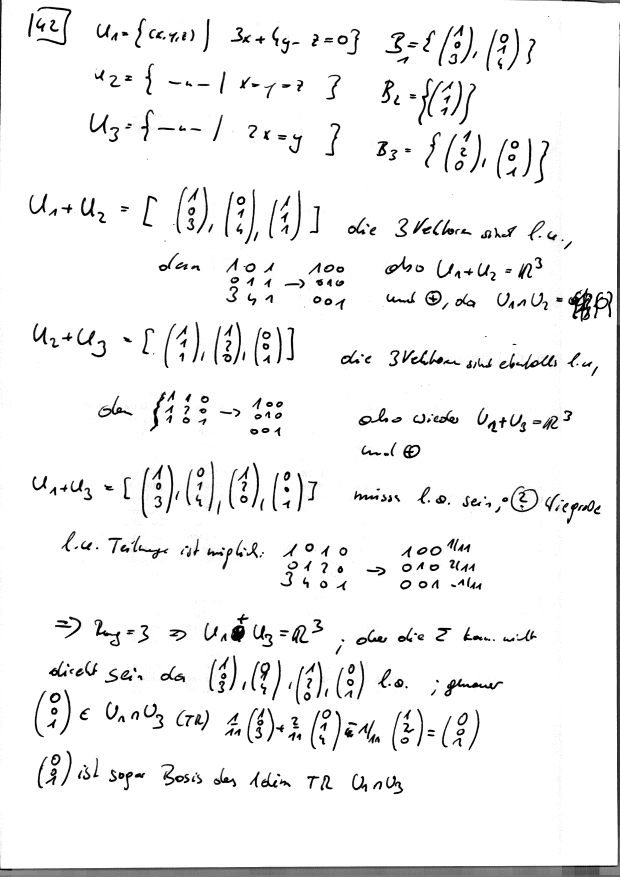 142
U₁ = {(x,y,z) | 3x+4y-z=0} B₁ = { (1 0 3), (0 1 4) }
U₂ = { -"- | x=y=z } B₂ = { (1 1 1) }
U₃ = { -"- | 2x=y } B₃ = { (1 2 0), (0 0 1) }
U₁+U₂ = [ (1 0 3), (0 1 4), (1 1 1) ] die 3 Vektoren sind l.u.,
denn 1 0 1 → 1 0 0 also U₁+U₂ = ℝ³
0 1 1 0 1 0
3 4 1 0 0 1 und ⊕, da U₁∩U₂ =
U₂+U₃ = [ (1 1 1), (1 2 0), (0 0 1) ] die 3 Vektoren sind ebenfalls l.u,
denn 1 1 0 → 1 0 0
1 2 0 0 1 0 also wieder U₂+U₃ = ℝ³
1 0 1 0 0 1 und ⊕
U₁+U₃ = [ (1 0 3), (0 1 4), (1 2 0), (0 0 1) ] müssen l.a. sein, ? Wie große
l.u. Teilmenge ist möglich: 1 0 1 0 → 1 0 0 1/11
0 1 2 0 0 1 0 2/11
3 4 0 1 0 0 1 -1/11
⇒ Rang = 3 ⇒ U₁ + U₃ = ℝ³ ; aber die Σ kann nicht
direkt sein da (1 0 3), (0 1 4), (1 2 0), (0 0 1) l.a. ; genauer
(0 0 1) ∈ U₁∩U₃ (TR) 1/11 (1 0 3) + 2/11 (0 1 4) - 1/11 (1 2 0) = (0 0 1)
(0 0 1) ist sogar Basis des 1dim TR U₁∩U₃